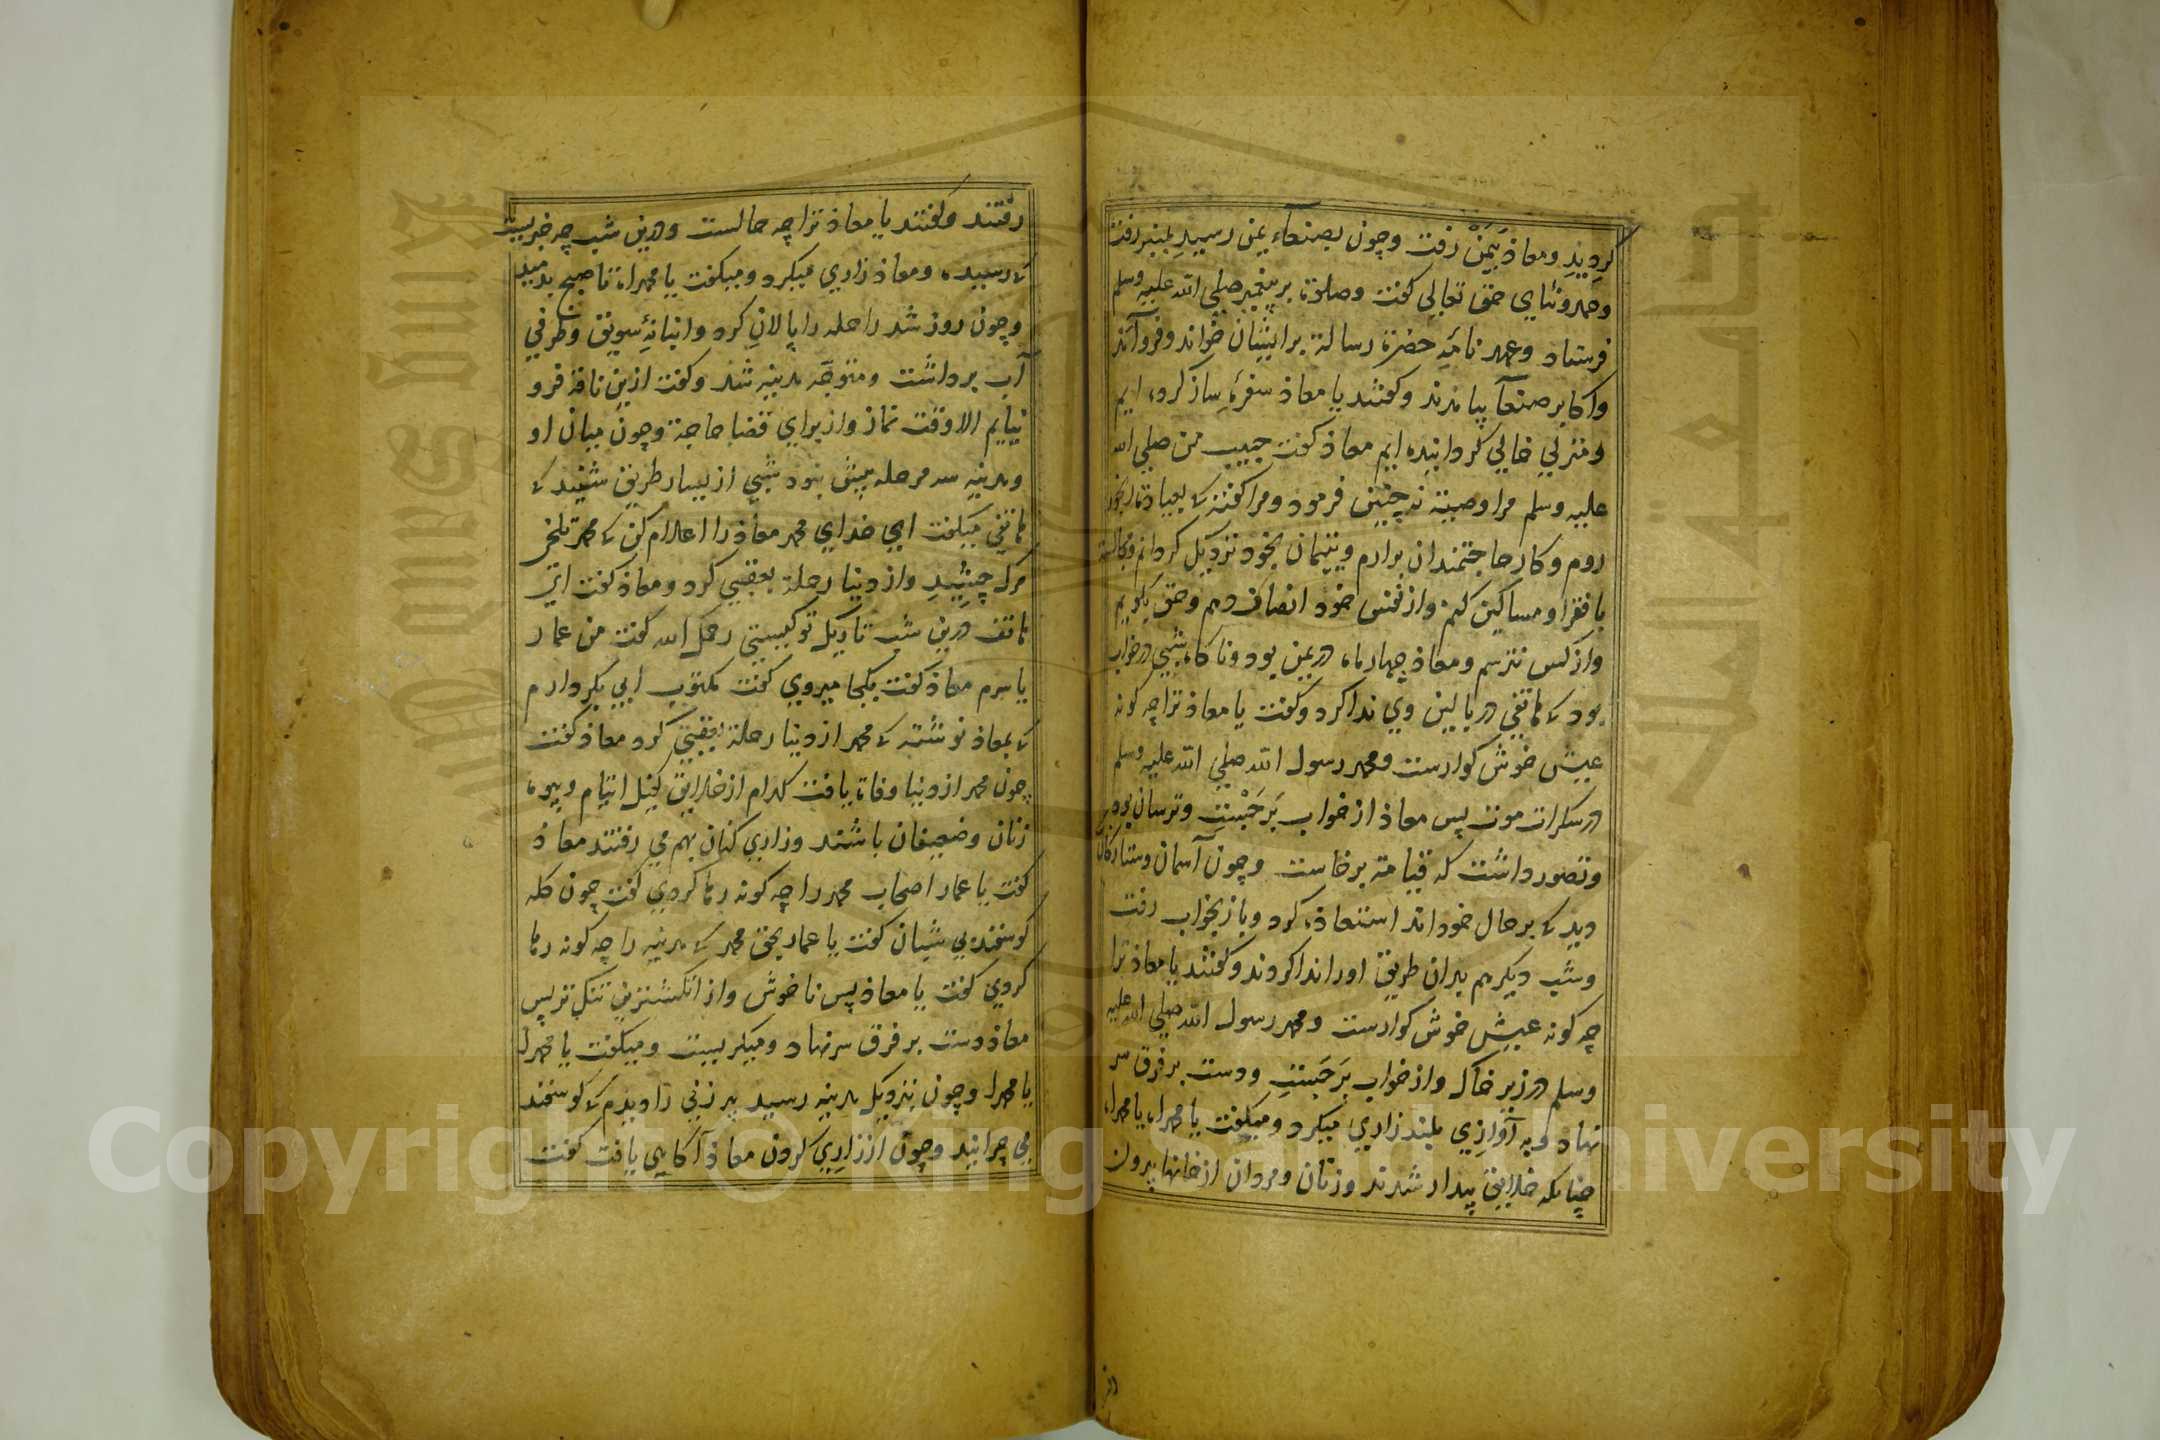 کردید ومعاذ بَیَمَنْ رفت وچون بصنعآء یمن رسیدِ بمنبر رفت
وحمد وثنای حق تعالی کفت وصلوة بر پیغمبر صلی الله علیه وسلم
فرستاد وعهد نامۀ حضرة رسالة برایشان خواند وفرو آمد
واکابر صنعآ بیامدند وکفتند یا معاذ سفرۀ ساز کرده ایم
ومنزلی خالی کردانیده ایم معاذ کفت حبیب من صلی الله
علیه وسلم مرا وصیة نه چنین فرمود ومرا کفته که بعیادة
روم وکار حاجتمندان برارم ویتیمان بخود نزدیک کردانم
با فقرا ومساکین کنم واز نفس خود انصاف دهم وحق بکویم
واز کس نترسم ومعاذ چهار ماه در یمن بود وناکاه شبی در خواب
بود که هاتفی در بالین وی ندا کرد وکفت یا معاذ ترا چه کونه
عیش خوش کوارست ومحمد رسول الله صلی الله علیه وسلم
در سکرات موت پس معاذ از خواب بَرجَسْت وترسان بود
وتصور داشت که قیامة برخاست وچون آسمان وستارکان
دید که بر حال خود اند استعاذه کرد وباز بخواب رفت
وشب دیکر هم بدان طریق اورا ندا کردند وکفتند یا معاذ ترا
چه کونه عیش خوش کوارست ومحمد رسول الله صلی الله علیه
وسلم در زیر خاک واز خواب بَرجَست ودست بر فرق سر
نهاد وبه آوازی بلند زاری میکرد ومیکفت یا محمداه یا محمداه
چنانکه خلایق بیدار شدند وزنان ومردان از خانها بیرون
رفتند وکفتند یا معاذ ترا چه حالست ودرین شب چه خبریست
که رسیده ومعاذ زاری میکرد ومیکفت یا محمداه تا صبح بدمید
وچون روز شد راحله را پالان کرد وانبانۀ سویق وظرفی
آب برداشت ومتوجه مدینه شد وکفت ازین ناقه فرو
نیایم الا وقت نماز واز برای قضا حاجة وچون میان او
ومدینه سه مرحله بیش نبود شبی از یسار طریق شنید که
هاتفی میکفت ای خدای محمد معاذ را اعلام کن که محمد تلخی
مرک چشید واز دنیا رحلة بعقبی کرد ومعاذ کفت ای
هاتف درین شب تاریک تو کیستی رحمک الله کفت من عمار
یاسرم معاذ کفت بکجا میروی کفت مکتوب ابی بکر دارم
که بمعاذ نوشته که محمد از دنیا رحلة بعقبی کرد معاذ کفت
چون محمد از دنیا وفاة یافت کدام از خلایق کفیل ایتام وبیوه
زنان وضعیفان باشند وزاری کنان بهم می رفتند معاذ
کفت یا عمار اصحاب محمد را چه کونه رها کردی کفت چون کله
کوسفند بی شبان کفت یا عمار بحق محمد که مدینه را چه کونه رها
کردی کفت یا معاذ پس ناخوش واز انکشترین تنک تر پس
معاذ دست بر فرق سر نهاد ومیکریست ومیکفت یا محمداه
یا محمداه وچون بنزدیک مدینه رسید پیر زنی را دیدم که کوسفند
می چرانید وچون از زاری کردن معاذ آکاهی یافت کفت
Copyright © King Saud University